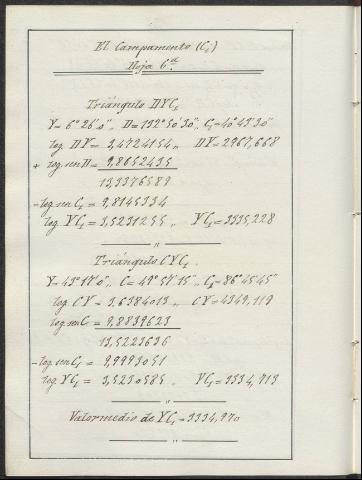 El Campamento (C₁)
Hoja 6ª
Triángulo DYC₁
Y=6°26'0" D=132°50'30", C₁=40°43'30"
log DY= 3,4724154 „ DY=2967,668
+ log sen D= 9,8652435
13,3376589
-log sen C₁= 9,8145334
log YC₁= 3,5231255 „ YC₁=3335,228
"
Triángulo CYC₁
Y=43°17'0", C=49°57'15", C₁=86°45'45"
log CY= 3,6384013 „ CY=4349,119
log sen C= 9,8839623
13,5223636
-log sen C₁= 9,9993051
log YC₁= 3,5230585 „ YC₁=3334,713
"
Valor medio de YC₁=3334,970
"